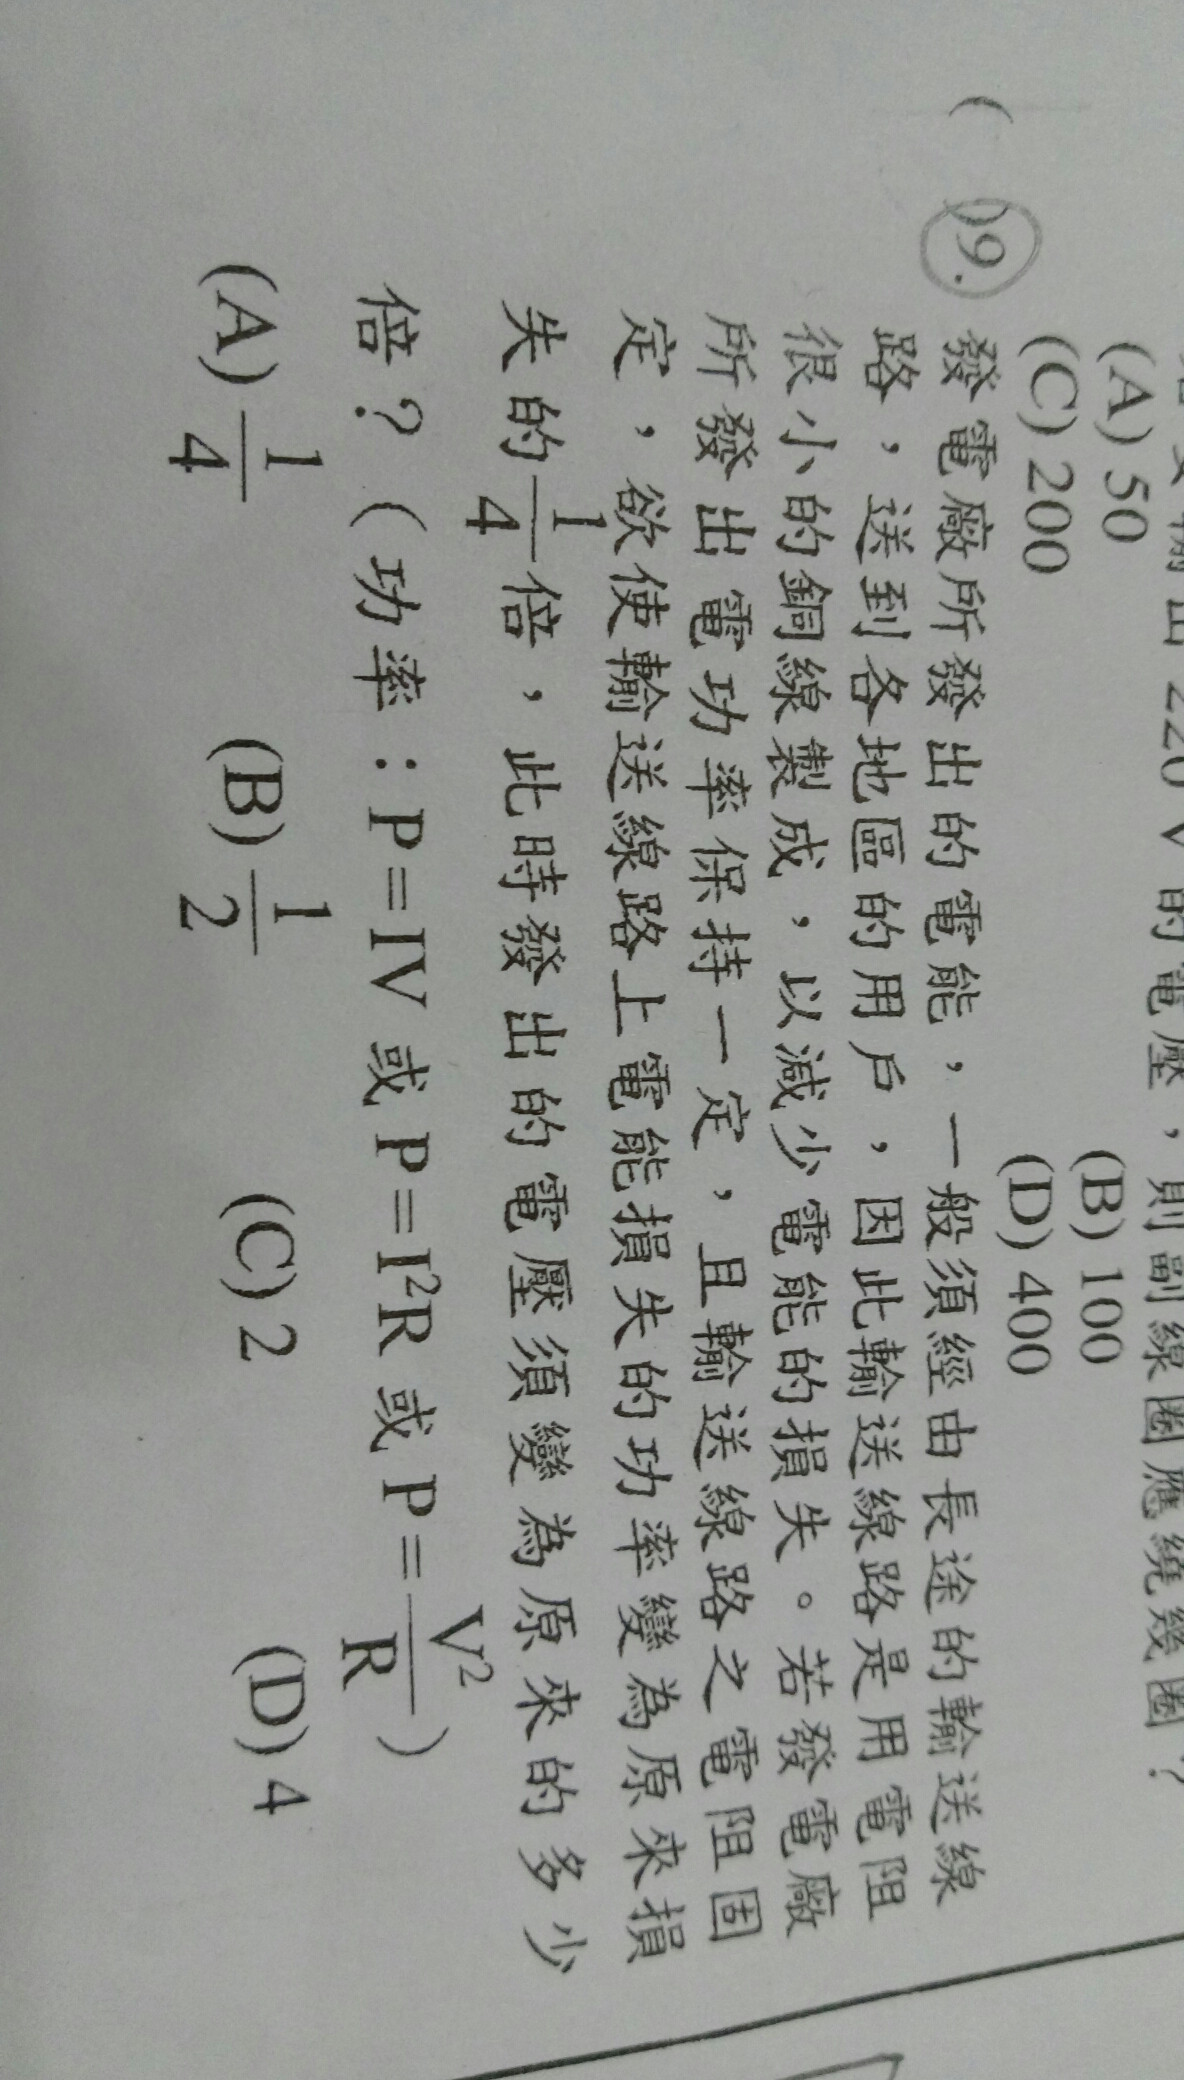 輸出 220 V 的電壓，則副線圈應繞幾圈？
(A) 50 (B) 100
(C) 200 (D) 400
( )9. 發電廠所發出的電能，一般須經由長途的輸送線
路，送到各地區的用戶，因此輸送線路是用電阻
很小的銅線製成，以減少電能的損失。若發電廠
所發出電功率保持一定，且輸送線路之電阻固
定，欲使輸送線路上電能損失的功率變為原來損
失的 1/4 倍，此時發出的電壓須變為原來的多少
倍？（功率：P=IV 或 P=I²R 或 P=V²/R）
(A) 1/4 (B) 1/2 (C) 2 (D) 4